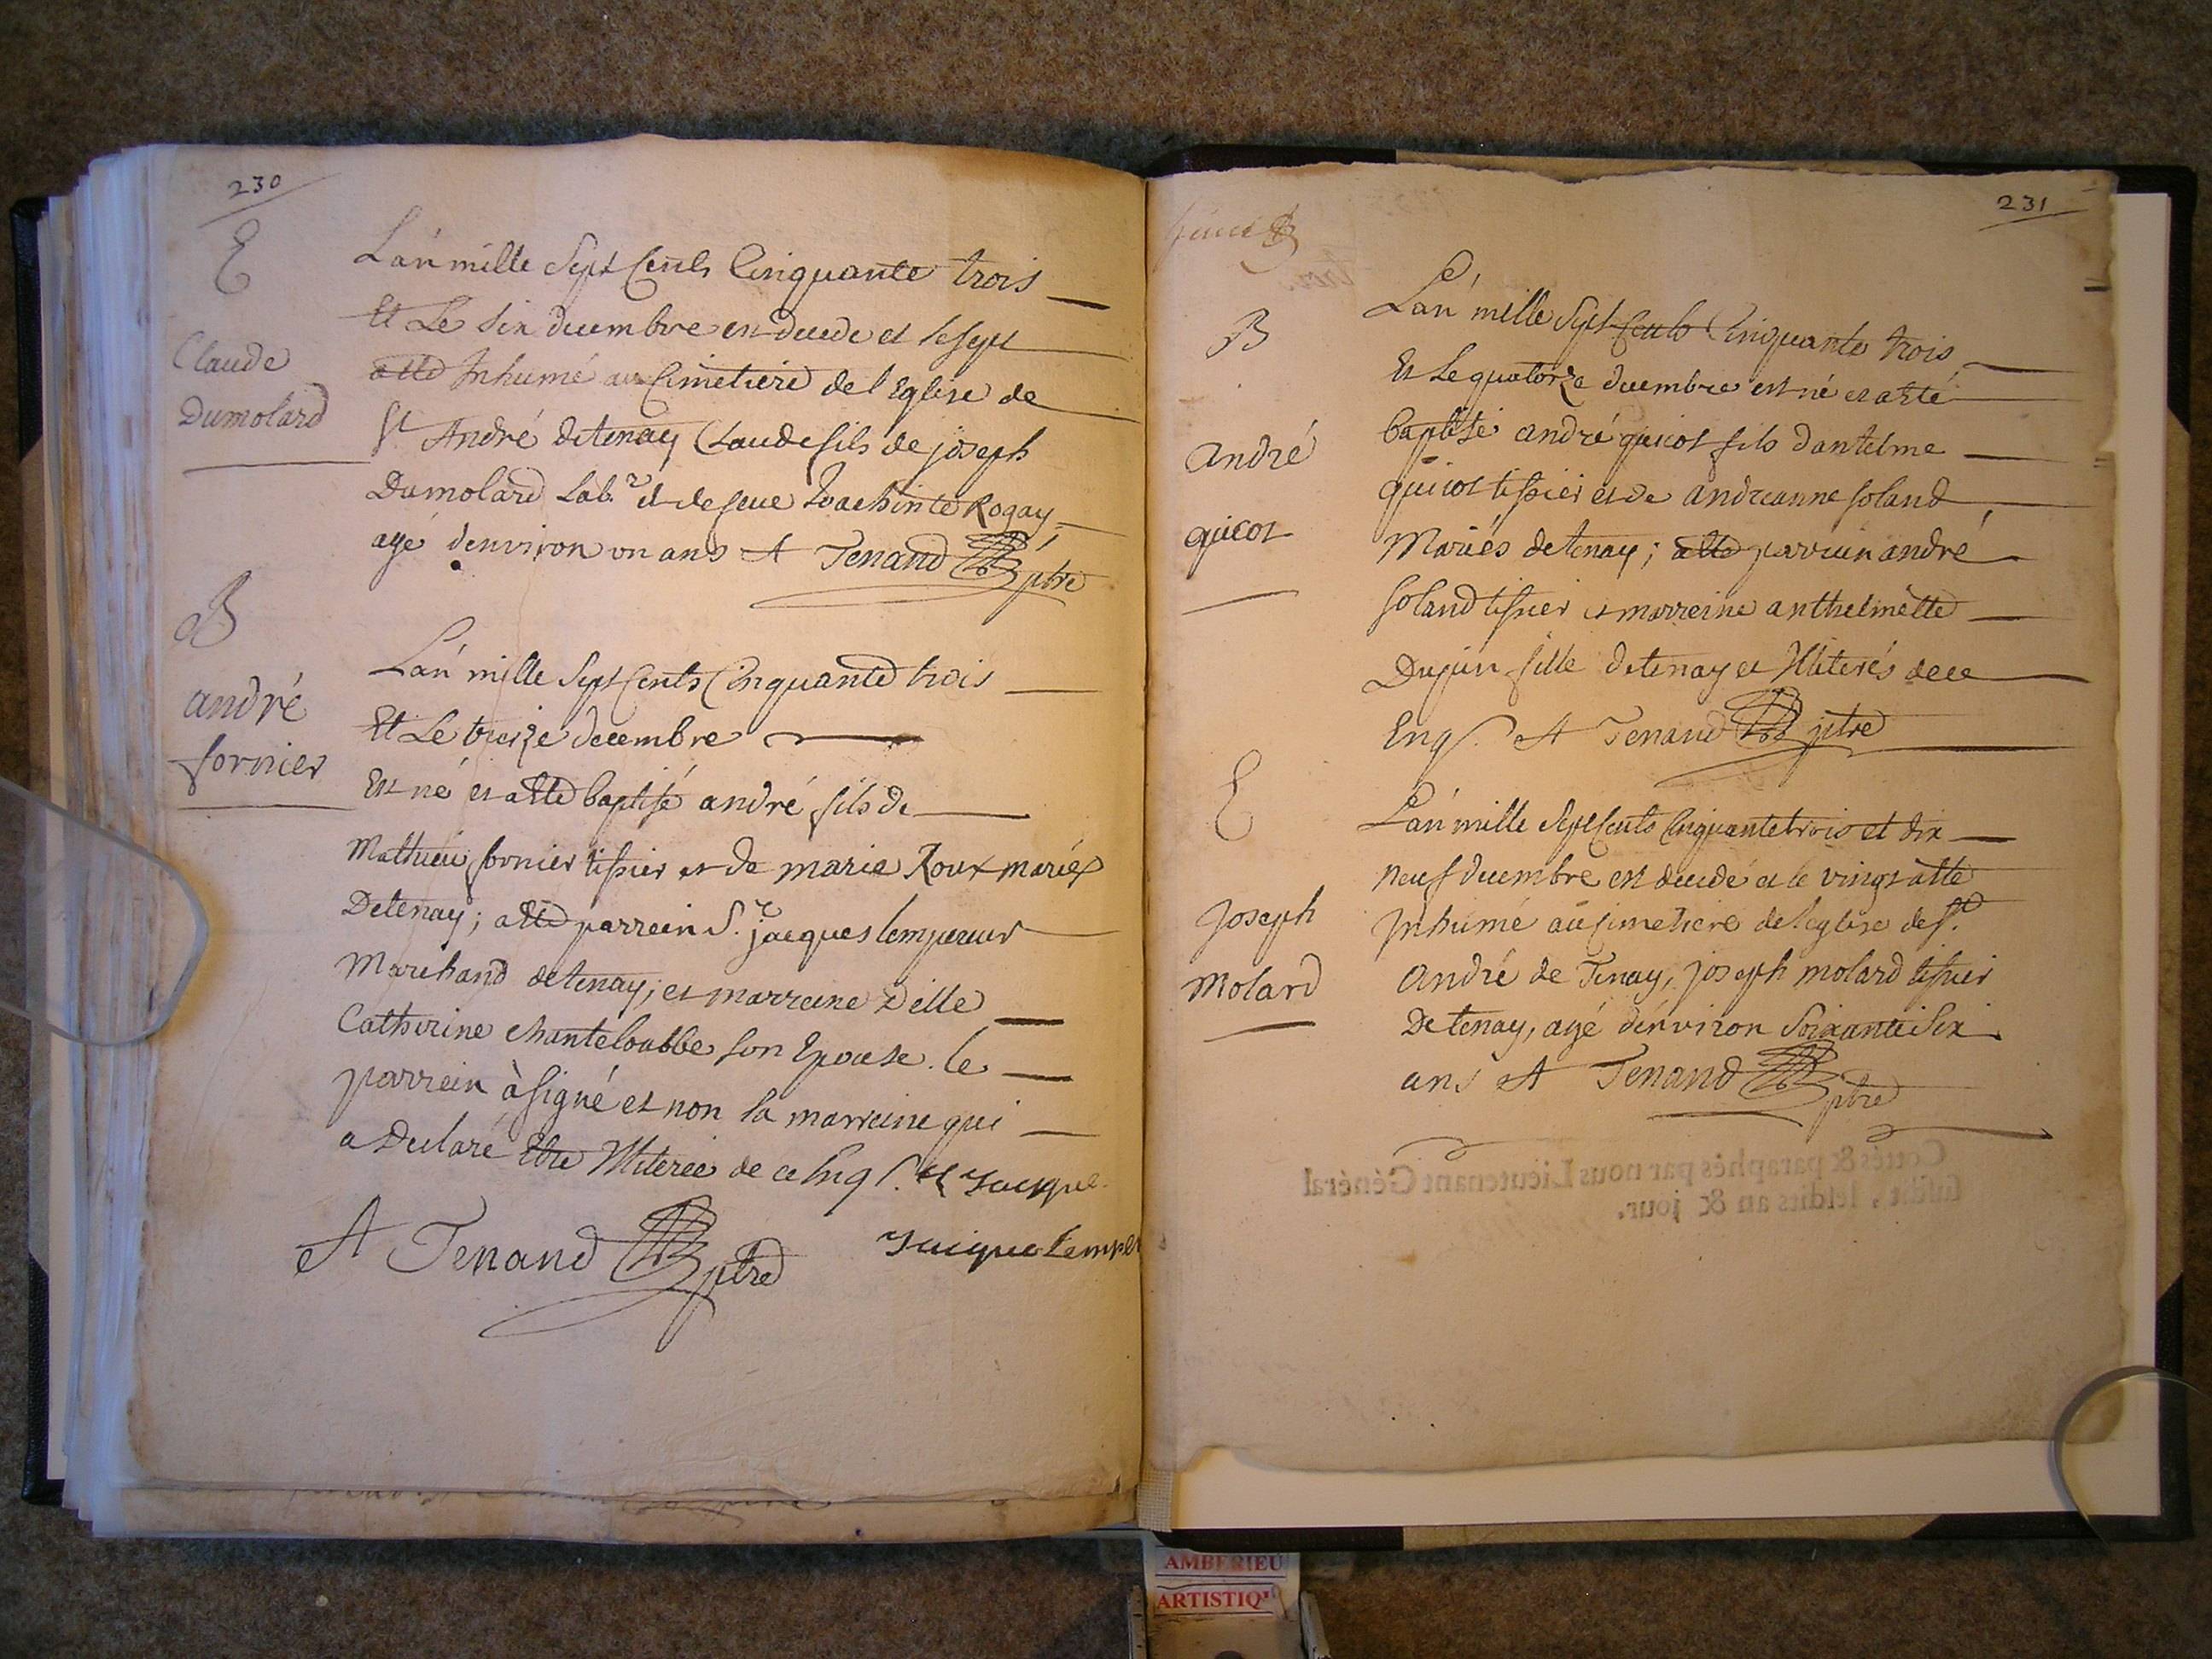 230
E
Claude
Dumolard
L'an mille Sept Cents Cinquante trois
Et Le six decembre est decede et le sept
a ete Inhumé au Cimetiere de l'Eglise de
St André de tenay Claude fils de joseph
Dumolard Lab.r et de feue Roachinte Rogay
agé d'environ un ans A Tenand ptre
B
andré
fornier
L'an mille Sept Cents Cinquante trois
Et Le treize decembre
Est né et a ete baptisé andré fils de
Mathieu fornier tissier et de marie Roux mariés
De tenay; a ete parrein S.r jacques lempereur
Marchand de tenay; et marreine Delle
Catherine Chanteloubbe son Epouse. le
parrein à signé et non la marreine qui
a Declaré Etre Illiterée de ce Enq.
A Tenand ptre
Jacque Lemper
231
B
andré
guicot
L'an mille Sept Cents Cinquante trois
Et Le quatorze decembre est né et a eté
baptisé andré guicot fils d'antelme
guicot tissier et de andreanne soland
Mariés de tenay; a ete parrein andré
soland tissier et marreine anthelmette
Dujin fille de tenay et Illiterés de ce
Enq. A Tenand ptre
E
Joseph
Molard
L'an mille Sept Cents Cinquante trois et dix
neuf decembre est decedé et le vingt a ete
Inhumé au Cimetiere de l'eglise de St
André de Tenay, joseph molard tissier
De tenay, agé d'environ Soixante Six
ans A Tenand ptre
Cottés & paraphés par nous Lieutenant Général
susdit, lesdits an & jour.
AMBERIEU
ARTISTIQ